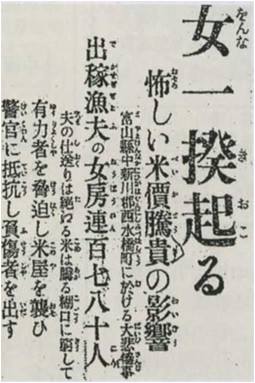 女一揆起る
怖しい米價騰貴の影響
富山縣中新川郡西水橋町に於ける大悲慘事
出稼漁夫の女房連百七八十人
夫の仕送りは絕ゆる米は騰る糊口に窮して
有力者を脅迫し米屋を襲ひ
警官に抵抗し負傷者を出す